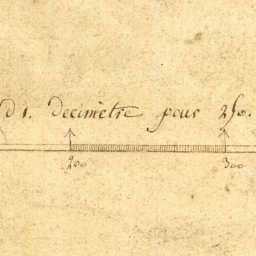 d 1. Decimètre pour 250.
200 300